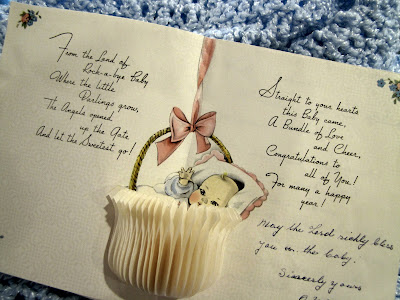 From the Land of
Rock-a-bye Baby
Where the little
Darlings grow,
The Angels opened
up the Gate
And let the Sweetest go!
Straight to your hearts
this Baby came,
A Bundle of Love
and Cheer,
Congratulations to
all of You!
For many a happy
year!
May the Lord richly bless
you in the baby.
Sincerely yours